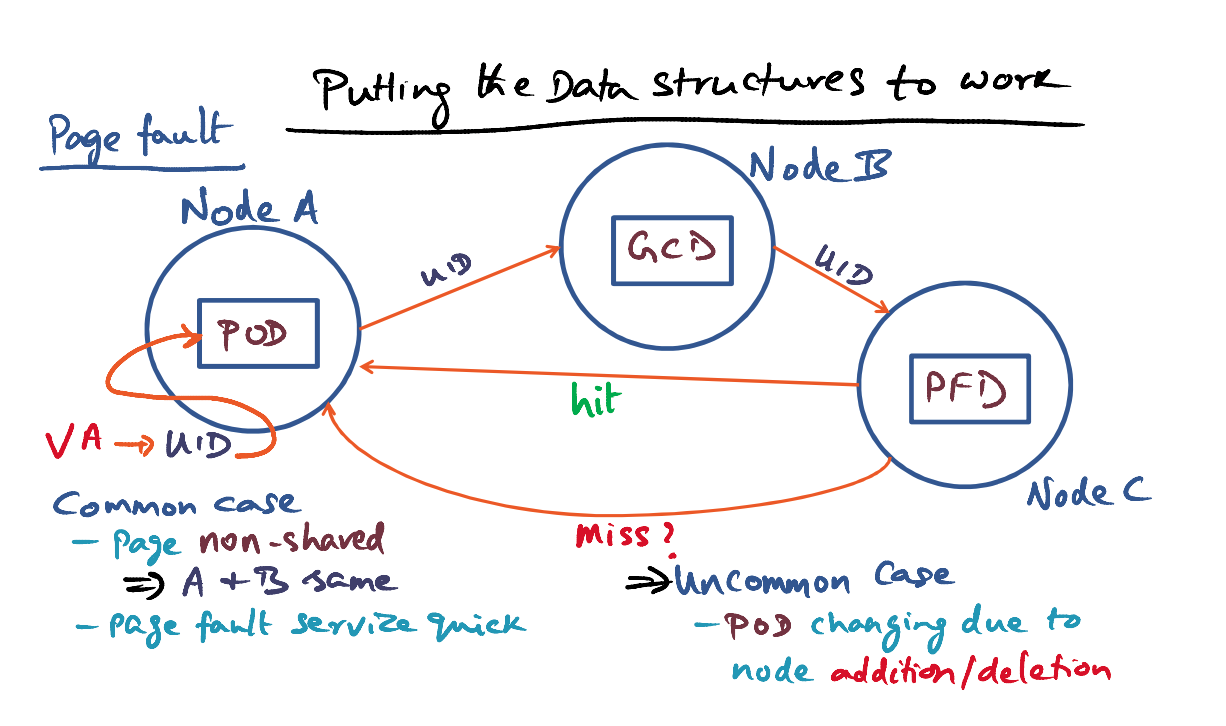 Putting the Data structures to work
Page fault
Node A
Node B
POD
UID
GCD
UID
PFD
hit
VA → UID
Node C
Common case
- Page non-shared
⇒ A + B same
- page fault service quick
Miss?
⇒ Uncommon case
- POD changing due to
node addition/deletion